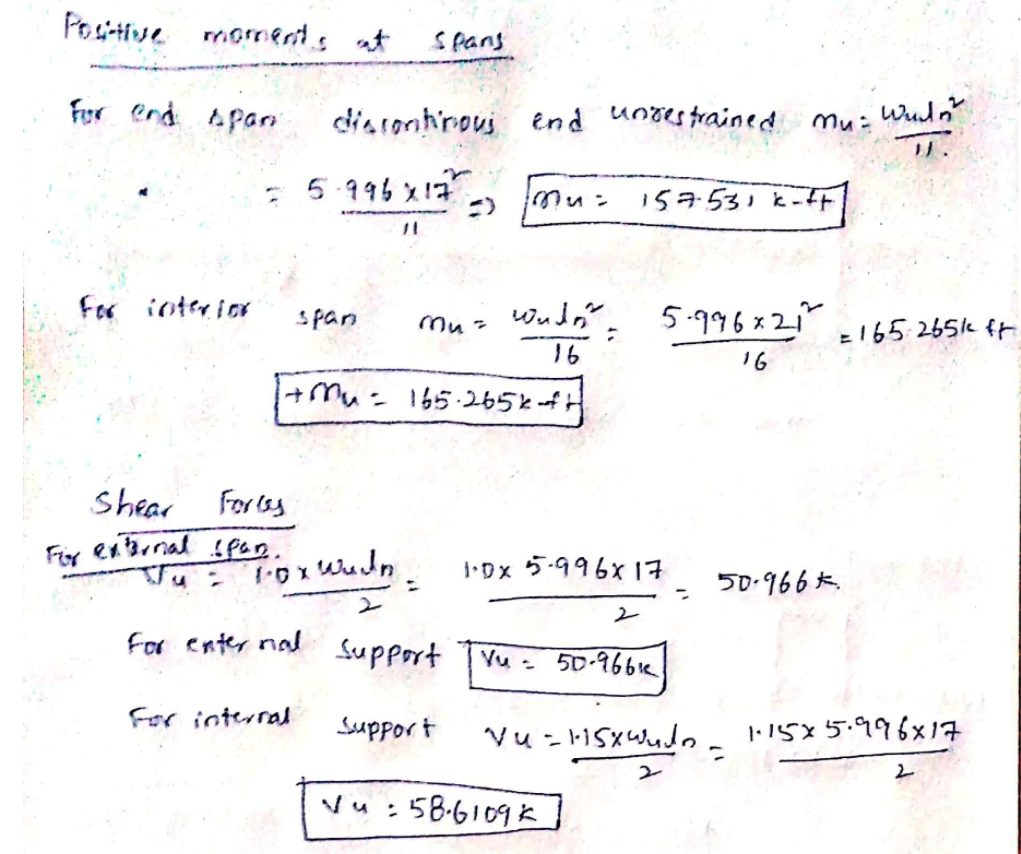 Positive moments at spans
For end span discontinous end unrestrained Mu = Wuln²/11
= 5.996 x 17²/11 => Mu = 157.531 k-ft
For interior span Mu = Wuln²/16 = 5.996 x 21²/16 = 165.265k ft
+Mu = 165.265k-ft
Shear Forces
For external span.
Vu = 1.0 x Wuln/2 = 1.0x 5.996x 17/2 = 50.966 k.
For external support Vu = 50.966k
For internal support Vu = 1.15xWuln/2 = 1.15x 5.996x17/2
Vu = 58.6109 k